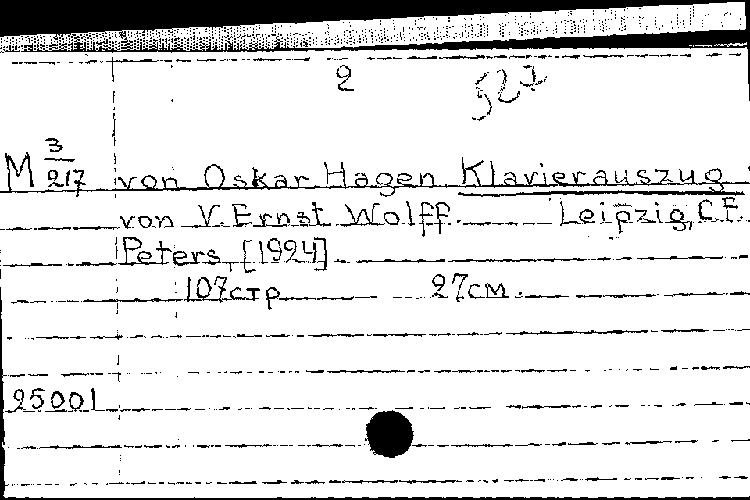 2
527
M 3/217 von Oskar Hagen Klavierauszug
von V. Ernst Wolff. Leipzig, C.F.
Peters, [1924]
107стр 27см.
25001